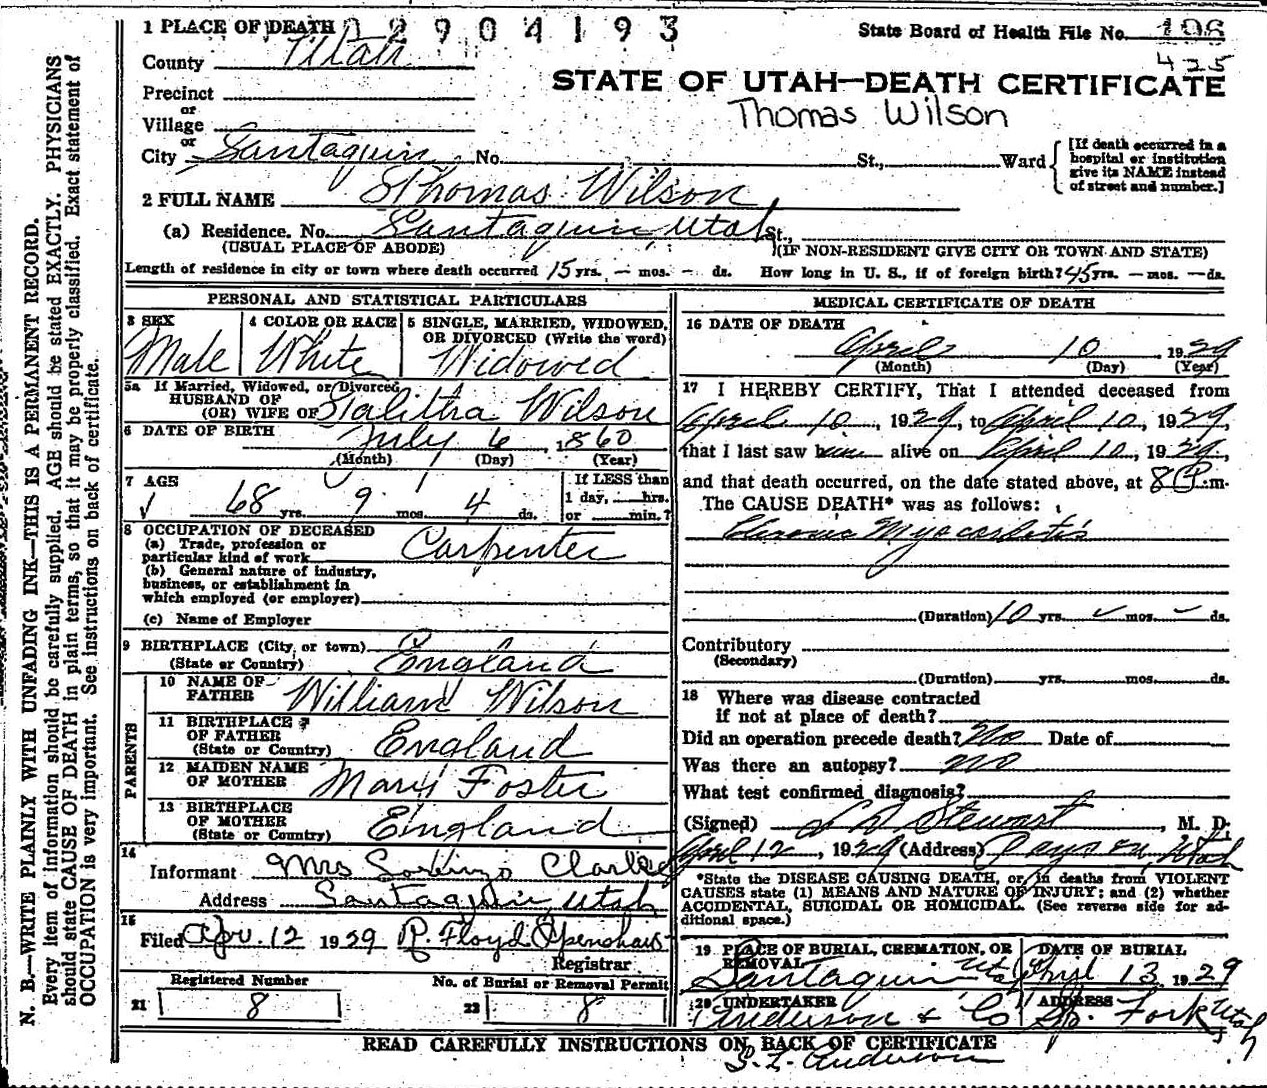 1 PLACE OF DEATH 02904193
State Board of Health File No. 106
425
County Utah
STATE OF UTAH—DEATH CERTIFICATE
Precinct
or
Village
Thomas Wilson
or
City Santaquin, No. St., Ward
[If death occurred in a
hospital or institution
give its NAME instead
of street and number.]
2 FULL NAME Thomas Wilson
(a) Residence. No. Santaquin, Utah St.,
(USUAL PLACE OF ABODE) (IF NON-RESIDENT GIVE CITY OR TOWN AND STATE)
Length of residence in city or town where death occurred 15 yrs. — mos. — ds. How long in U. S., if of foreign birth? 45 yrs. — mos. — ds.
PERSONAL AND STATISTICAL PARTICULARS
3 SEX
Male
4 COLOR OR RACE
White
5 SINGLE, MARRIED, WIDOWED,
OR DIVORCED (Write the word)
Widowed
5a If Married, Widowed, or Divorced
HUSBAND OF
(OR) WIFE OF Talitha Wilson
6 DATE OF BIRTH July 6, 1860
(Month) (Day) (Year)
7 AGE
68 yrs. 9 mos. 4 ds.
If LESS than
1 day, hrs.
or min.?
8 OCCUPATION OF DECEASED
(a) Trade, profession or
particular kind of work Carpenter
(b) General nature of industry,
business, or establishment in
which employed (or employer)
(c) Name of Employer
9 BIRTHPLACE (City, or town)
(State or Country) England
PARENTS
10 NAME OF
FATHER William Wilson
11 BIRTHPLACE
OF FATHER
(State or Country) England
12 MAIDEN NAME
OF MOTHER Mary Foster
13 BIRTHPLACE
OF MOTHER
(State or Country) England
14
Informant Mrs Clarke
Address Santaquin, Utah
15
Filed Apr. 12 1929 R. Floyd Openshaw
Registrar
Registered Number
21 8
No. of Burial or Removal Permit
22 8
MEDICAL CERTIFICATE OF DEATH
16 DATE OF DEATH
April 10 1929
(Month) (Day) (Year)
17 I HEREBY CERTIFY, That I attended deceased from
April 10, 1929, to April 10, 1929,
that I last saw him alive on April 10, 1929,
and that death occurred, on the date stated above, at 8 P.m.
The CAUSE DEATH* was as follows:
Chronic Myocarditis
(Duration) 10 yrs. mos. ds.
Contributory
(Secondary)
(Duration) yrs. mos. ds.
18 Where was disease contracted
if not at place of death?
Did an operation precede death? No Date of
Was there an autopsy? No
What test confirmed diagnosis?
(Signed) Stewart, M. D.
April 12, 1929 (Address) Payson Utah
*State the DISEASE CAUSING DEATH, or, in deaths from VIOLENT
CAUSES state (1) MEANS AND NATURE OF INJURY; and (2) whether
ACCIDENTAL, SUICIDAL OR HOMICIDAL. (See reverse side for ad-
ditional space.)
19 PLACE OF BURIAL, CREMATION, OR
REMOVAL
Santaquin Utah
DATE OF BURIAL
April 13 1929
20 UNDERTAKER
Anderson & Co
ADDRESS
Sp. Fork Utah
READ CAREFULLY INSTRUCTIONS ON BACK OF CERTIFICATE
S. L. Anderson
N. B.—WRITE PLAINLY WITH UNFADING INK—THIS IS A PERMANENT RECORD.
Every item of information should be carefully supplied. AGE should be stated EXACTLY. PHYSICIANS
should state CAUSE OF DEATH in plain terms, so that it may be properly classified. Exact statement of
OCCUPATION is very important. See instructions on back of certificate.